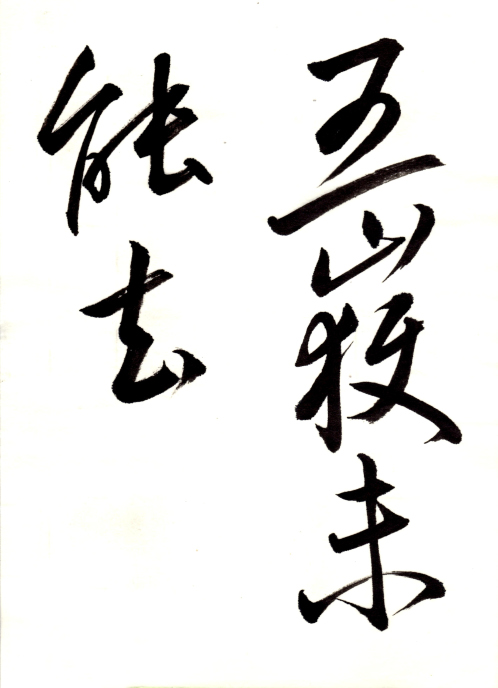 五嶽未
能去